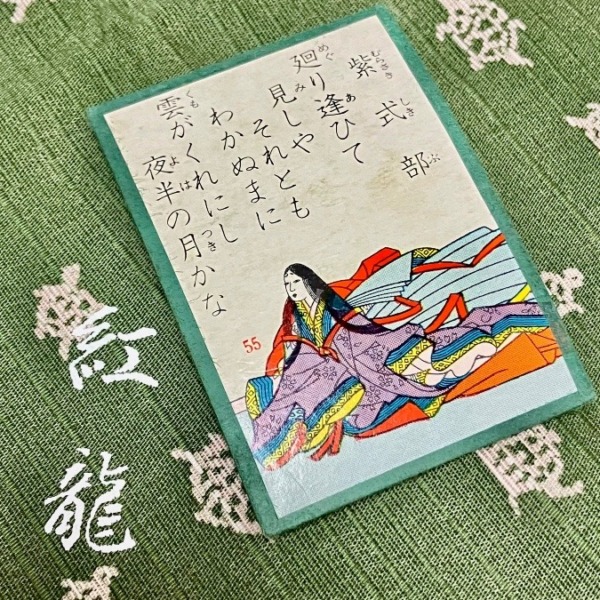 紫式部
廻り逢ひて
見しやとも
それとも
わかぬまに
雲がくれにし
夜半の月かな
55
紅龍